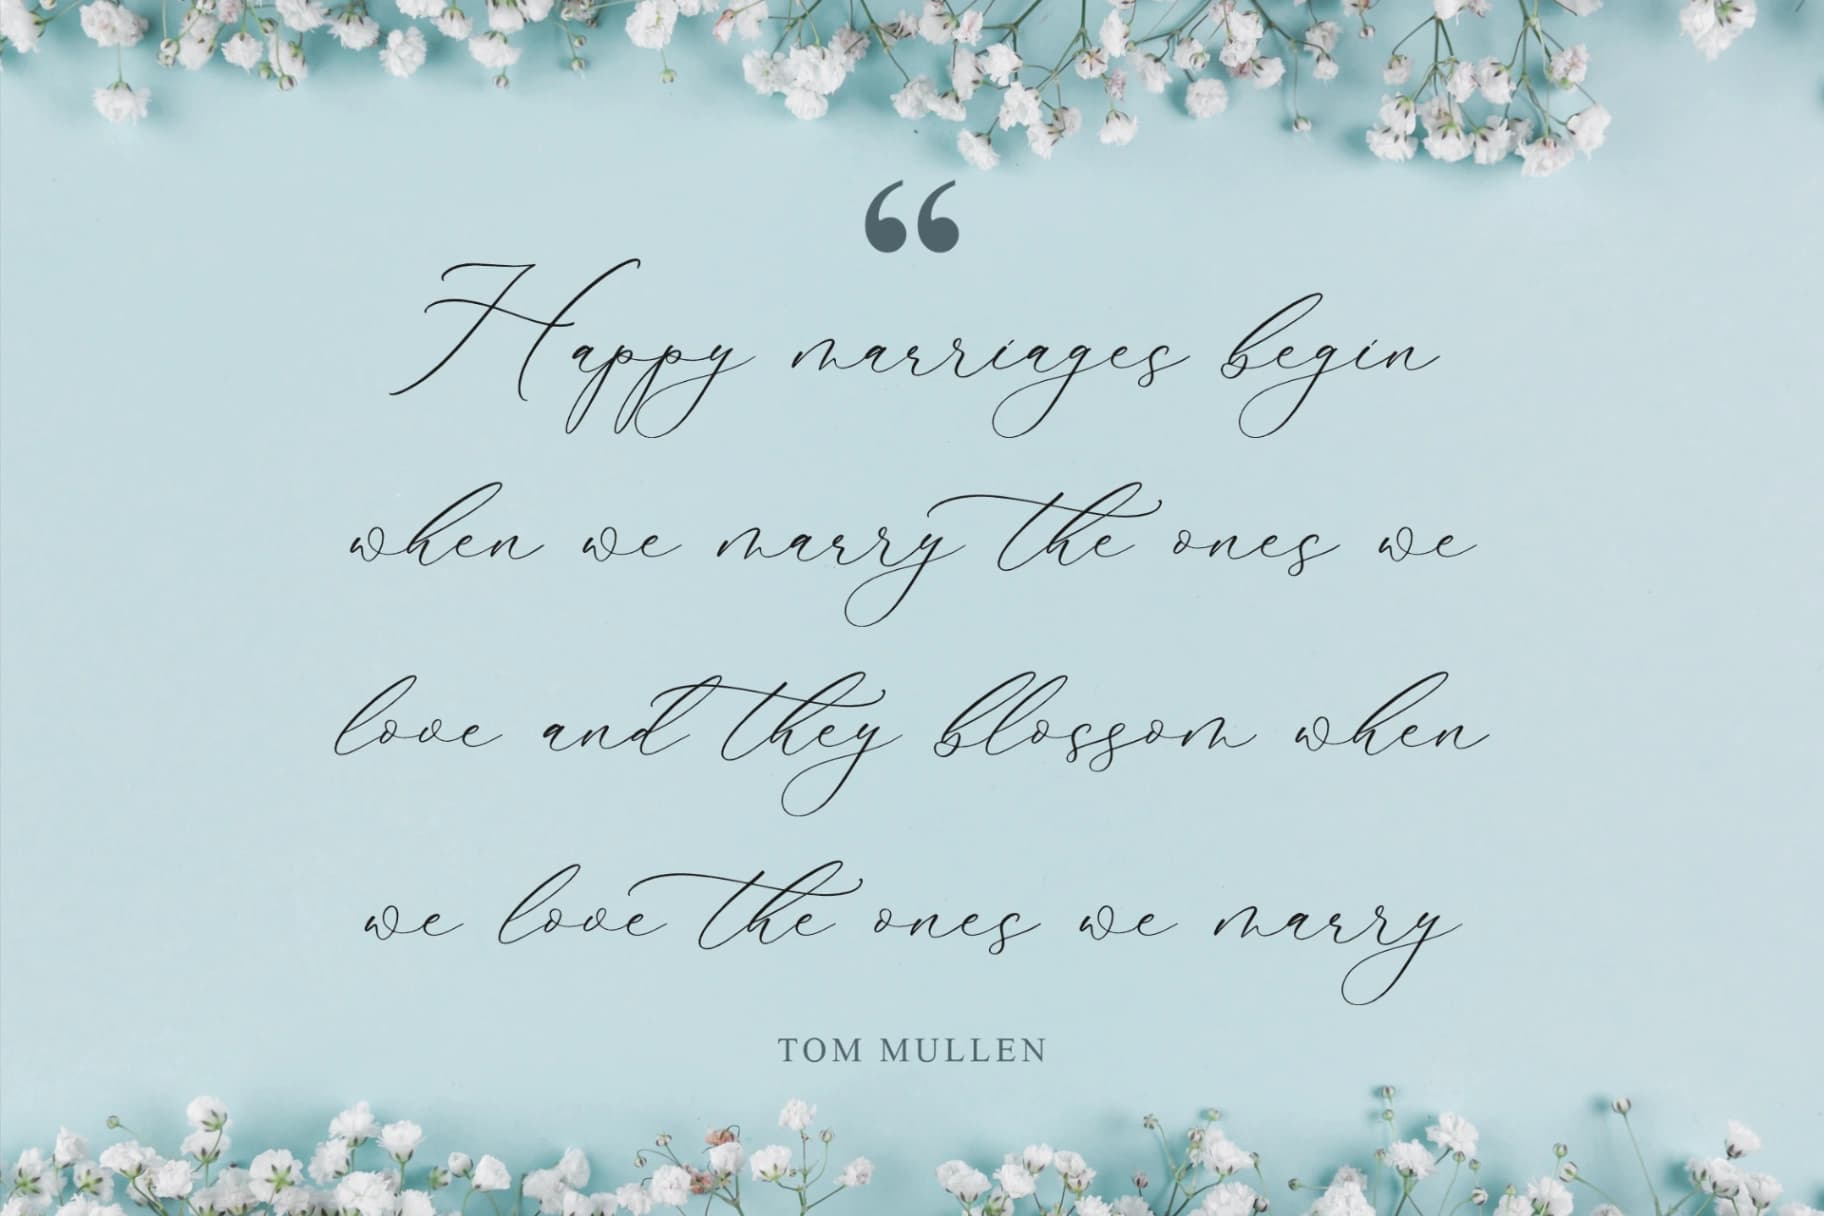 “
Happy marriages begin
when we marry the ones we
love and they blossom when
we love the ones we marry
TOM MULLEN